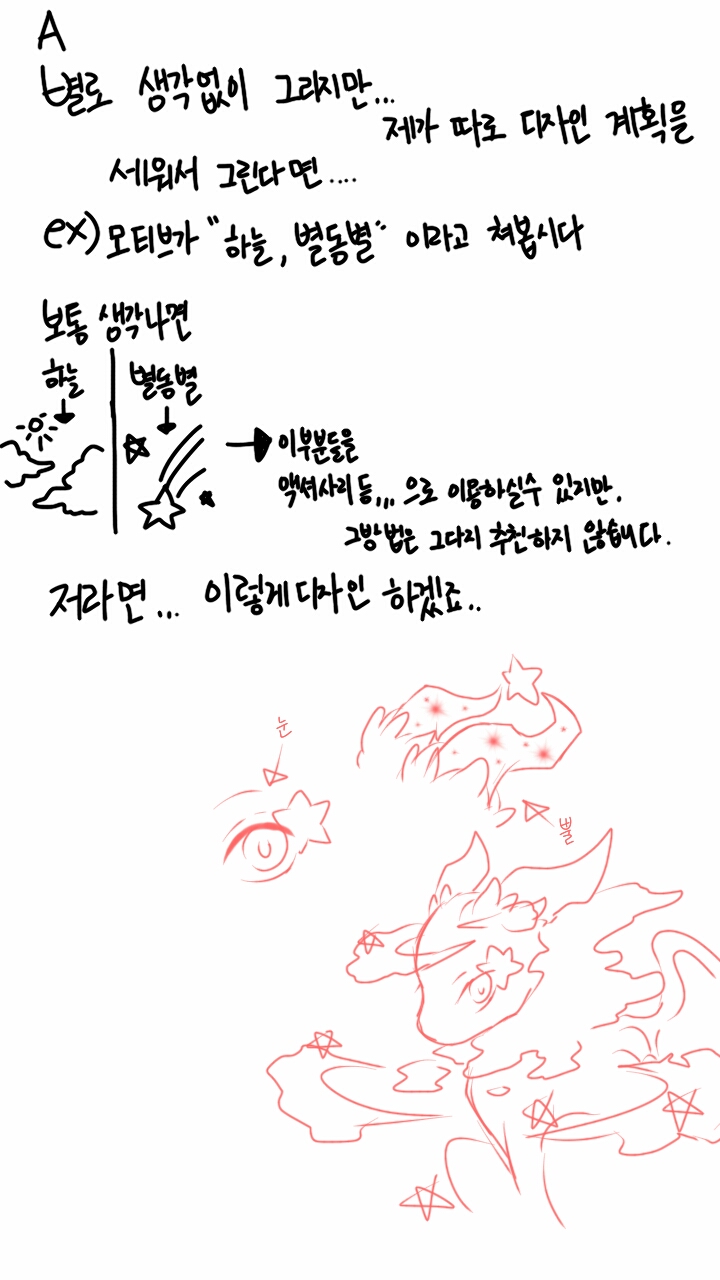 A
별로 생각없이 그리지만...
제가 따로 디자인 계획을
세워서 그린다면....
ex) 모티브가 "하늘, 별똥별" 이라고 쳐봅시다
보통 생각나면
하늘
별똥별
이부분들을
액셔사리등,,, 으로 이용하실수 있지만.
그방법은 그다지 추천하지 않습니다.
저라면... 이렇게 디자인 하겠죠..
눈
뿔